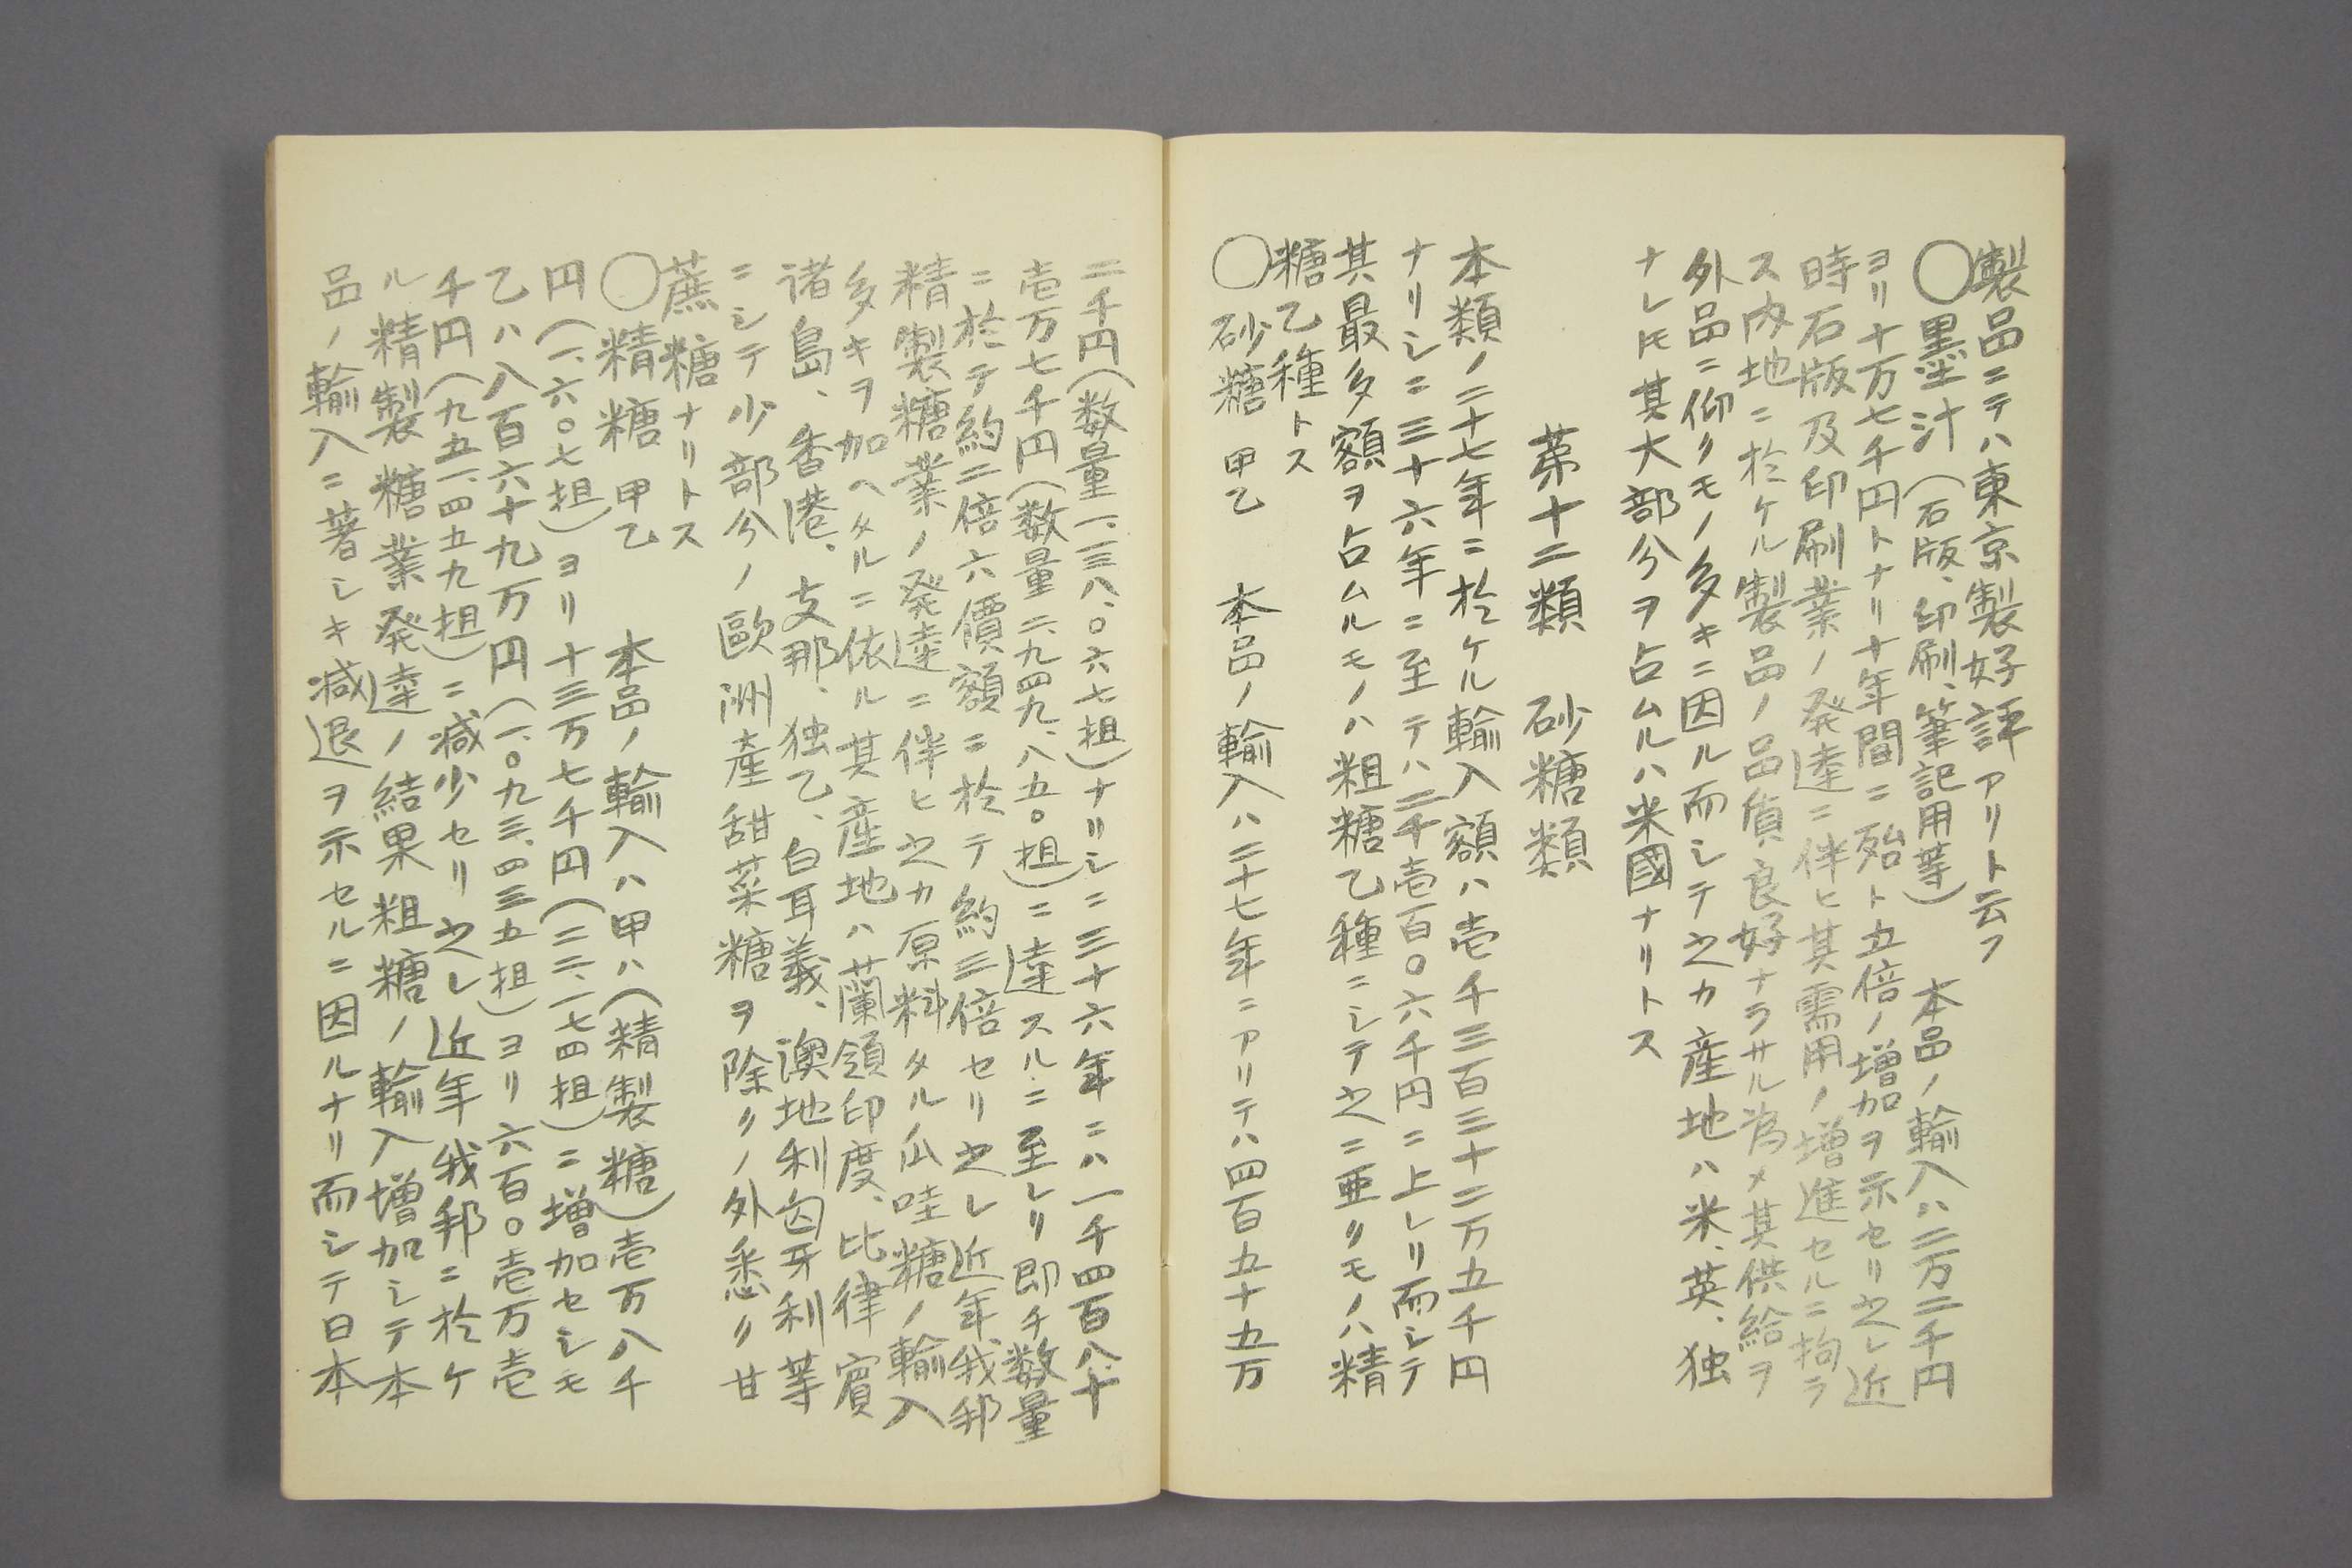 製品ニテハ東京製好評アリト云フ
〇墨汁（石版、印刷、筆記用等）　本品ノ輸入ハ二万二千円
ヨリ十万七千円トナリ十年間ニ殆ト五倍ノ増加ヲ示セリ之レ近
時石版及印刷業ノ発達ニ伴ヒ其需用ノ増進セルニ拘ラ
ス内地ニ於ケル製品ノ品質良好ナラサル為メ其供給ヲ
外品ニ仰クモノ多キニ因ル而シテ之カ産地ハ米、英、独
ナレ𪜈其大部分ヲ占ムルハ米國ナリトス
第十二類　砂糖類
本類ノ二十七年ニ於ケル輸入額ハ壱千三百三十二万五千円
ナリシニ三十六年ニ至テハ二千壱百〇六千円ニ上レリ而シテ
其最多額ヲ占ムルモノハ粗糖乙種ニシテ之ニ亜クモノハ精
糖乙種トス
〇砂糖　甲乙　本品ノ輸入ハ二十七年ニアリテハ四百五十五万
二千円（数量一、三三八、〇六七担）ナリシニ三十六年ニハ一千四百八十
壱万七千円（数量二、九四九、八五〇担）ニ達スルニ至レリ即チ数量
ニ於テ約二倍六價額ニ於テ約三倍セリ之レ近年我邦
精製糖業ノ発達ニ伴ヒ之カ原料タル瓜哇糖ノ輸入
多キヲ加ヘタルニ依ル其産地ハ廾蘭領印度、比律賓
諸島、香港、支那、独乙、白耳義、澳地利匈牙利等
ニシテ少部分ノ歐洲産甜菜糖ヲ除クノ外悉ク甘
蔗糖ナリトス
〇精糖　甲乙　本品ノ輸入ハ甲ハ（精製糖）壱万八千
円（一、六〇七担）ヨリ十三万七千円（二二、一七四担）ニ増加セシモ
乙ハ八百六十九万円（一、〇九三、四三五担）ヨリ六百〇壱万壱
千円（九五一、四五九担）ニ減少セリ之レ近年我邦ニ於ケ
ル精製糖業発達ノ結果粗糖ノ輸入増加シテ本
品ノ輸入ニ著シキ減退ヲ示セルニ因ルナリ而シテ日本